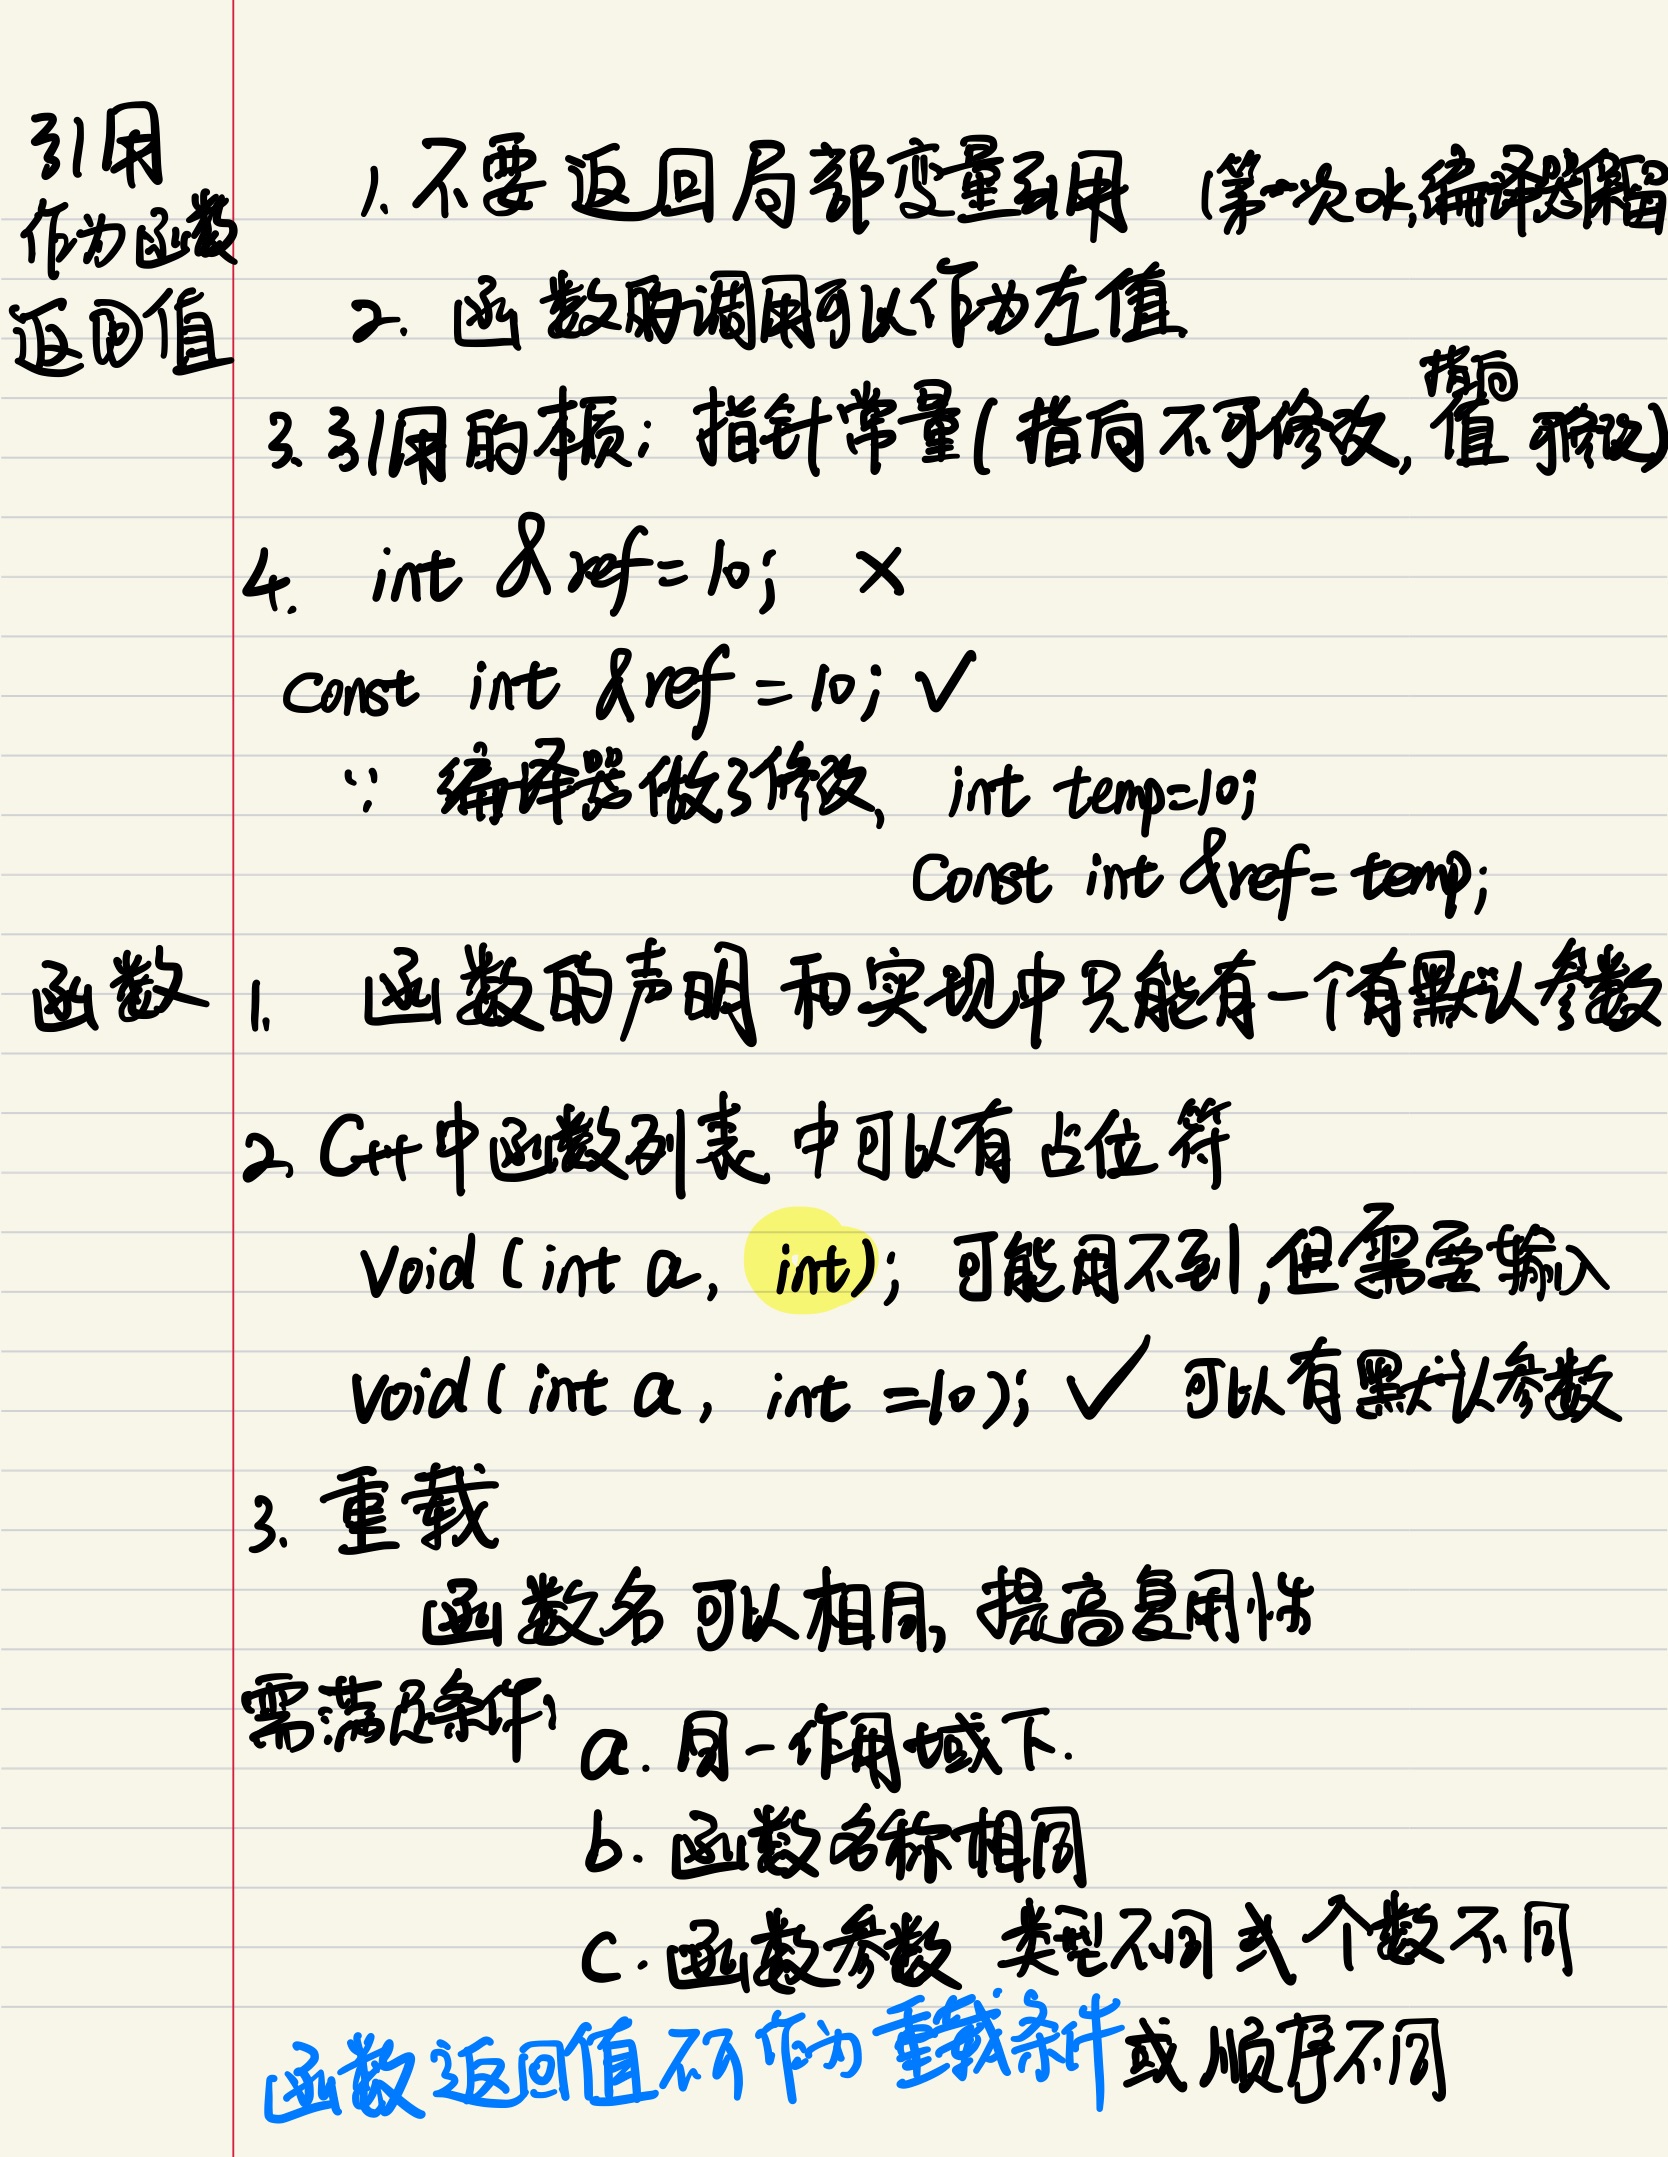 引用
作为函数
返回值
1. 不要返回局部变量引用 (第一次ok,编译器保留
2. 函数的调用可以作为左值
3. 引用的本质: 指针常量(指向不可修改, 指向值可修改)
4. int &ref=10; ×
const int &ref=10; ✓
∵ 编译器做了修改, int temp=10;
const int &ref=temp;
函数
1. 函数的声明和实现中只能有一个有默认参数
2. C++中函数列表中可以有占位符
void(int a, int); 可能用不到,但需要输入
void(int a, int =10); ✓ 可以有默认参数
3. 重载
函数名可以相同, 提高复用性
需满足条件
a. 同一作用域下.
b. 函数名称相同
c. 函数参数 类型不同 或 个数不同
或顺序不同
函数返回值不可作为重载条件